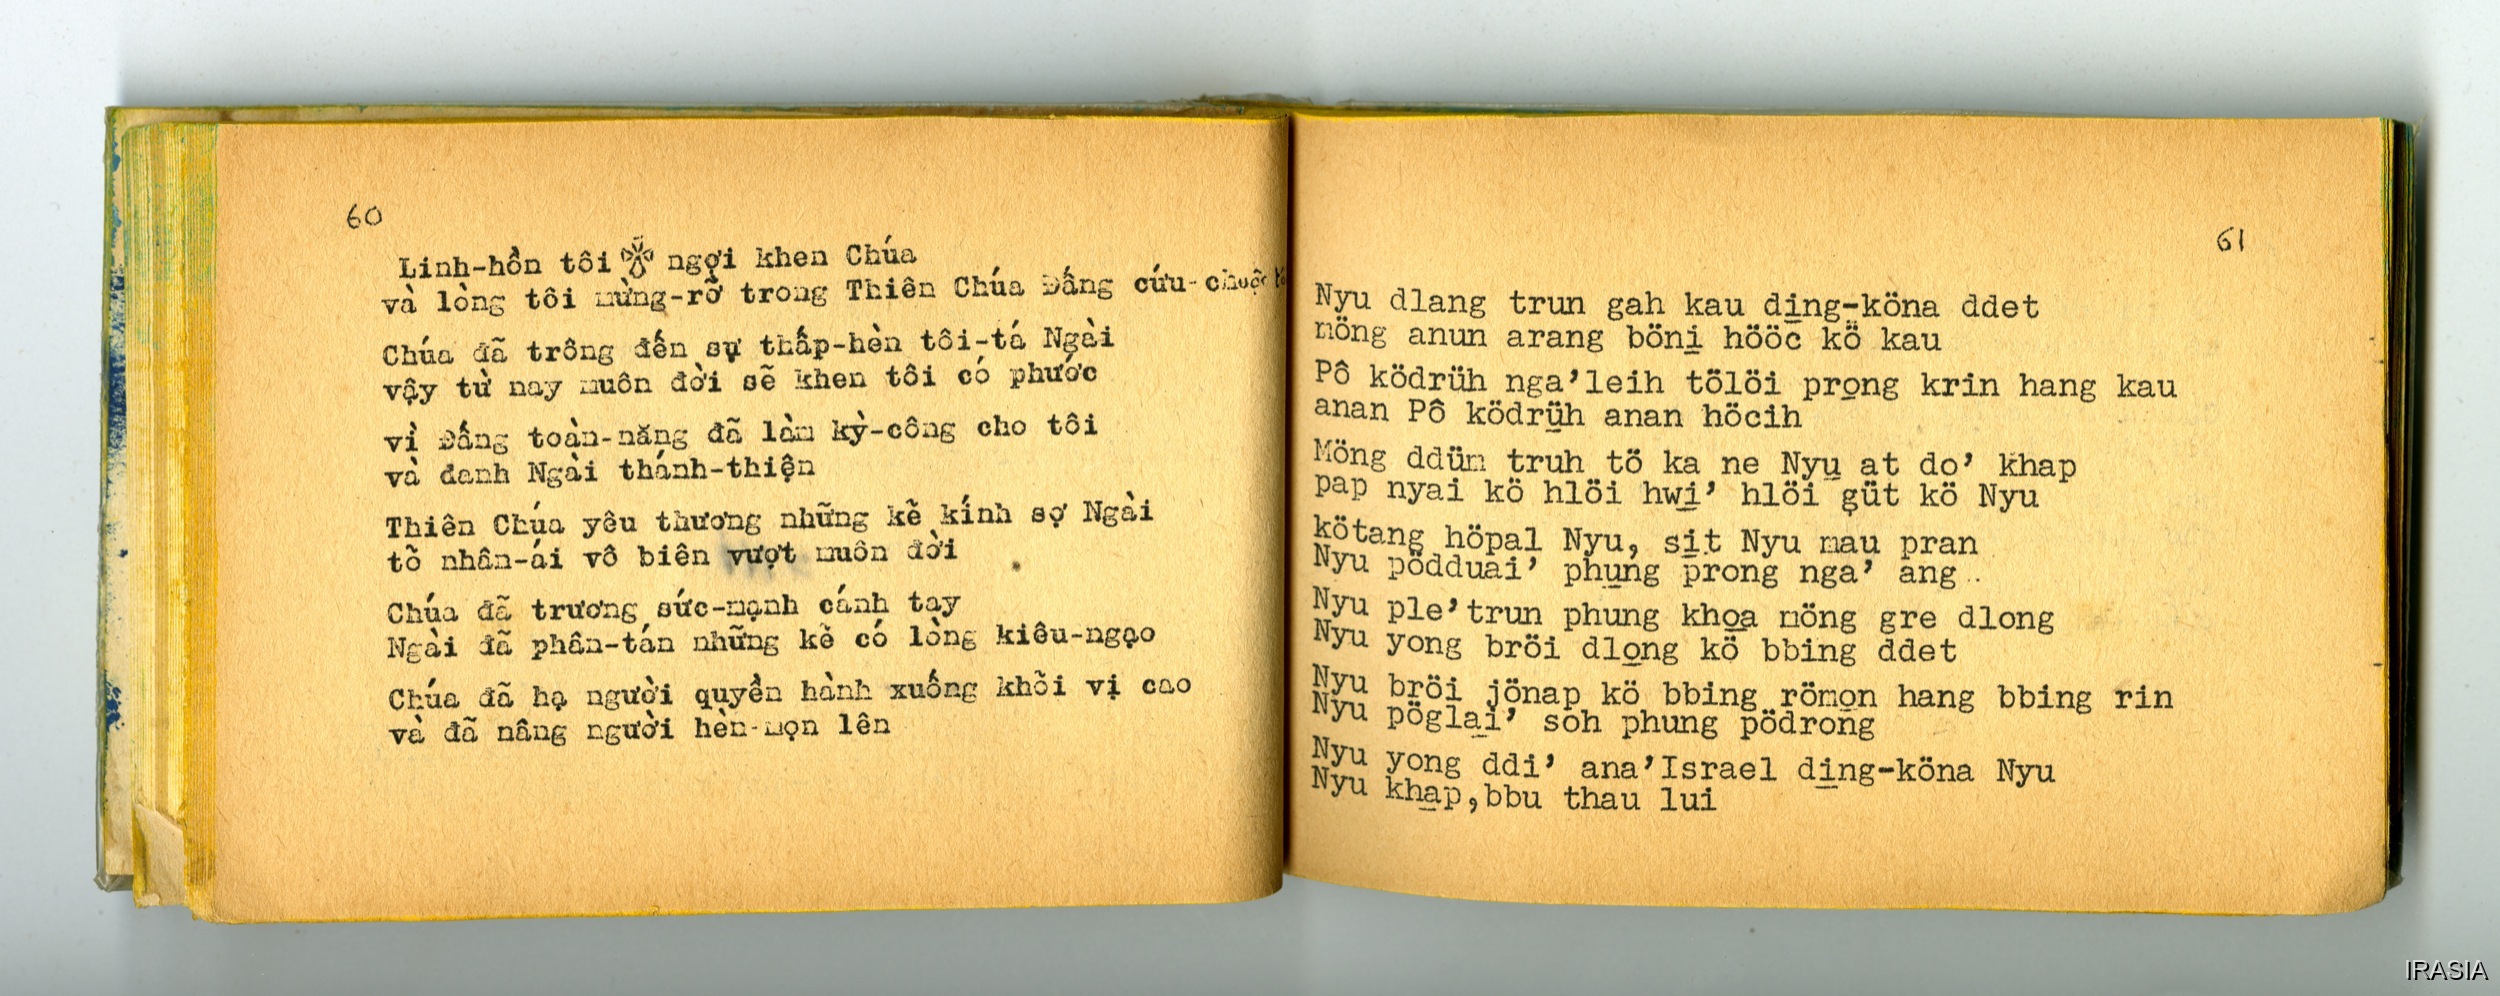 60
Linh-hồn tôi ngợi khen Chúa
và lòng tôi mừng-rỡ trong Thiên Chúa Đấng cứu-chuộc
Chúa đã trông đến sự thấp-hèn tôi-tá Ngài
vậy từ nay muôn đời sẽ khen tôi có phước
vì Đấng toàn-năng đã làm kỳ-công cho tôi
và danh Ngài thánh-thiện
Thiên Chúa yêu thương những kẻ kính sợ Ngài
tỏ nhân-ái vô biên vượt muôn đời
Chúa đã trương sức-mạnh cánh tay
Ngài đã phân-tán những kẻ có lòng kiêu-ngạo
Chúa đã hạ người quyền hành xuống khỏi vị cao
và đã nâng người hèn-mọn lên
61
Nyu dlang trun gah kau di̱ng-köna ddet
möng anun arang böni̱ hööc kö̆ kau
Pô ködrüh nga’leih tö̆löi pro̱ng krin hang kau
anan Pô ködrü̱h anan höcih
Möng ddüm truh tö̆ ka ne Nyu̱ at do’ khap
pap nyai kö̆ hlöi hwi̱’ hlöi gü̆t kö̆ Nyu
kötang höpal Nyu, si̱t Nyu mau pran
Nyu pödduai’ phu̱ng prong nga’ ang
Nyu ple’trun phung kho̱a möng gre dlong
Nyu yong bröi dlo̱ng kö̆ bbing ddet
Nyu bröi jönap kö̆ bbing römo̱n hang bbing rin
Nyu pögla̱i’ soh phung pödrong
Nyu yong ddi’ ana’Israel di̱ng-köna Nyu
Nyu kha̱p,bbu thau lui
IRASIA